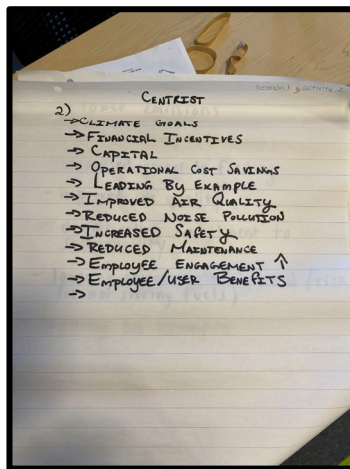 Session 1, activity 2
CENTRIST
2)
→ CLIMATE GOALS
→ FINANCIAL INCENTIVES
→ CAPITAL
→ OPERATIONAL COST SAVINGS
→ LEADING BY EXAMPLE
→ IMPROVED AIR QUALITY
→ REDUCED NOISE POLLUTION
→ INCREASED SAFETY
→ REDUCED MAINTENANCE
→ EMPLOYEE ENGAGEMENT ↑
→ EMPLOYEE/USER BENEFITS
→